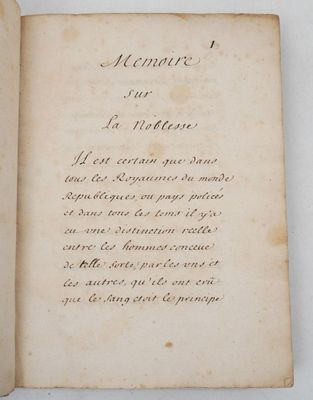 1
Memoire
sur
La Noblesse
Il est certain que dans
tous les Royaumes du monde
Republiques, ou pays policés
et dans tous les tems il y'a
eu vne distinction reelle
entre les hommes conceue
de telle sorte par les vns et
les autres, qu'ils ont crû
que le sang etoit le principe